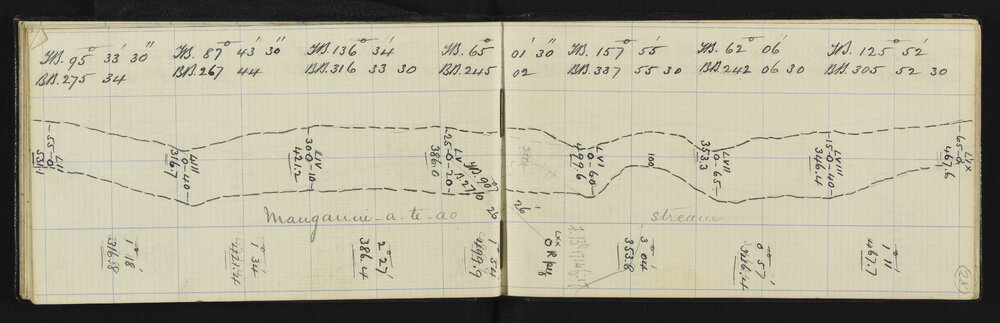 FB. 95° 33' 30"
BB. 275 34
FB. 87° 43' 30"
BB. 267 44
FB. 136° 34'
BB. 316 33 30
FB. 65° 01' 30"
BB. 245 02
FB. 157° 55'
BB. 337 55 30
FB. 62° 06'
BB. 242 06 30
FB. 125° 52'
BB. 305 52 30
LII
-55-0
531.1
LIII
0-40-
316.7
LIV
-30-0-10-
421.2
LV
-25-0-20-
386.0
LVI
0-60-
499.6
100
LVII
0-65-
353.3
LVIII
-15-0-40-
346.4
LIX
-65-0
467.6
Manganui-a-te-ao
stream
1° 18'
316.8
1° 34'
421.4
2° 27'
386.4
1° 54'
499.9
26
26
LXX
O R peg
3° 04'
353.8
0° 57'
346.4
1° 11'
467.7
(28)